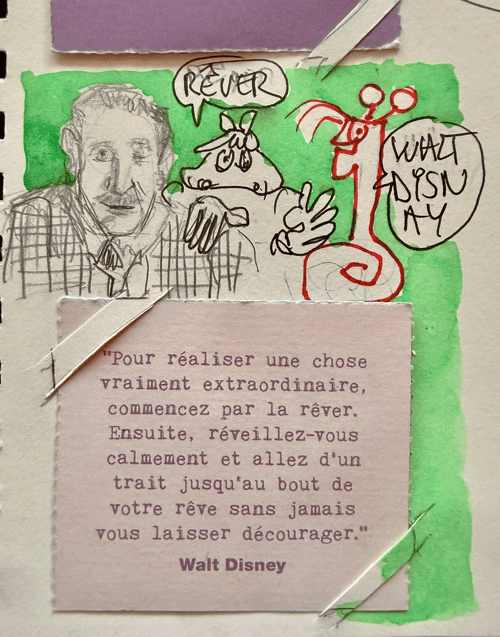 RÊVER
WALT
DISN
AY
"Pour réaliser une chose
vraiment extraordinaire,
commencez par la rêver.
Ensuite, réveillez-vous
calmement et allez d'un
trait jusqu'au bout de
votre rêve sans jamais
vous laisser décourager."
Walt Disney